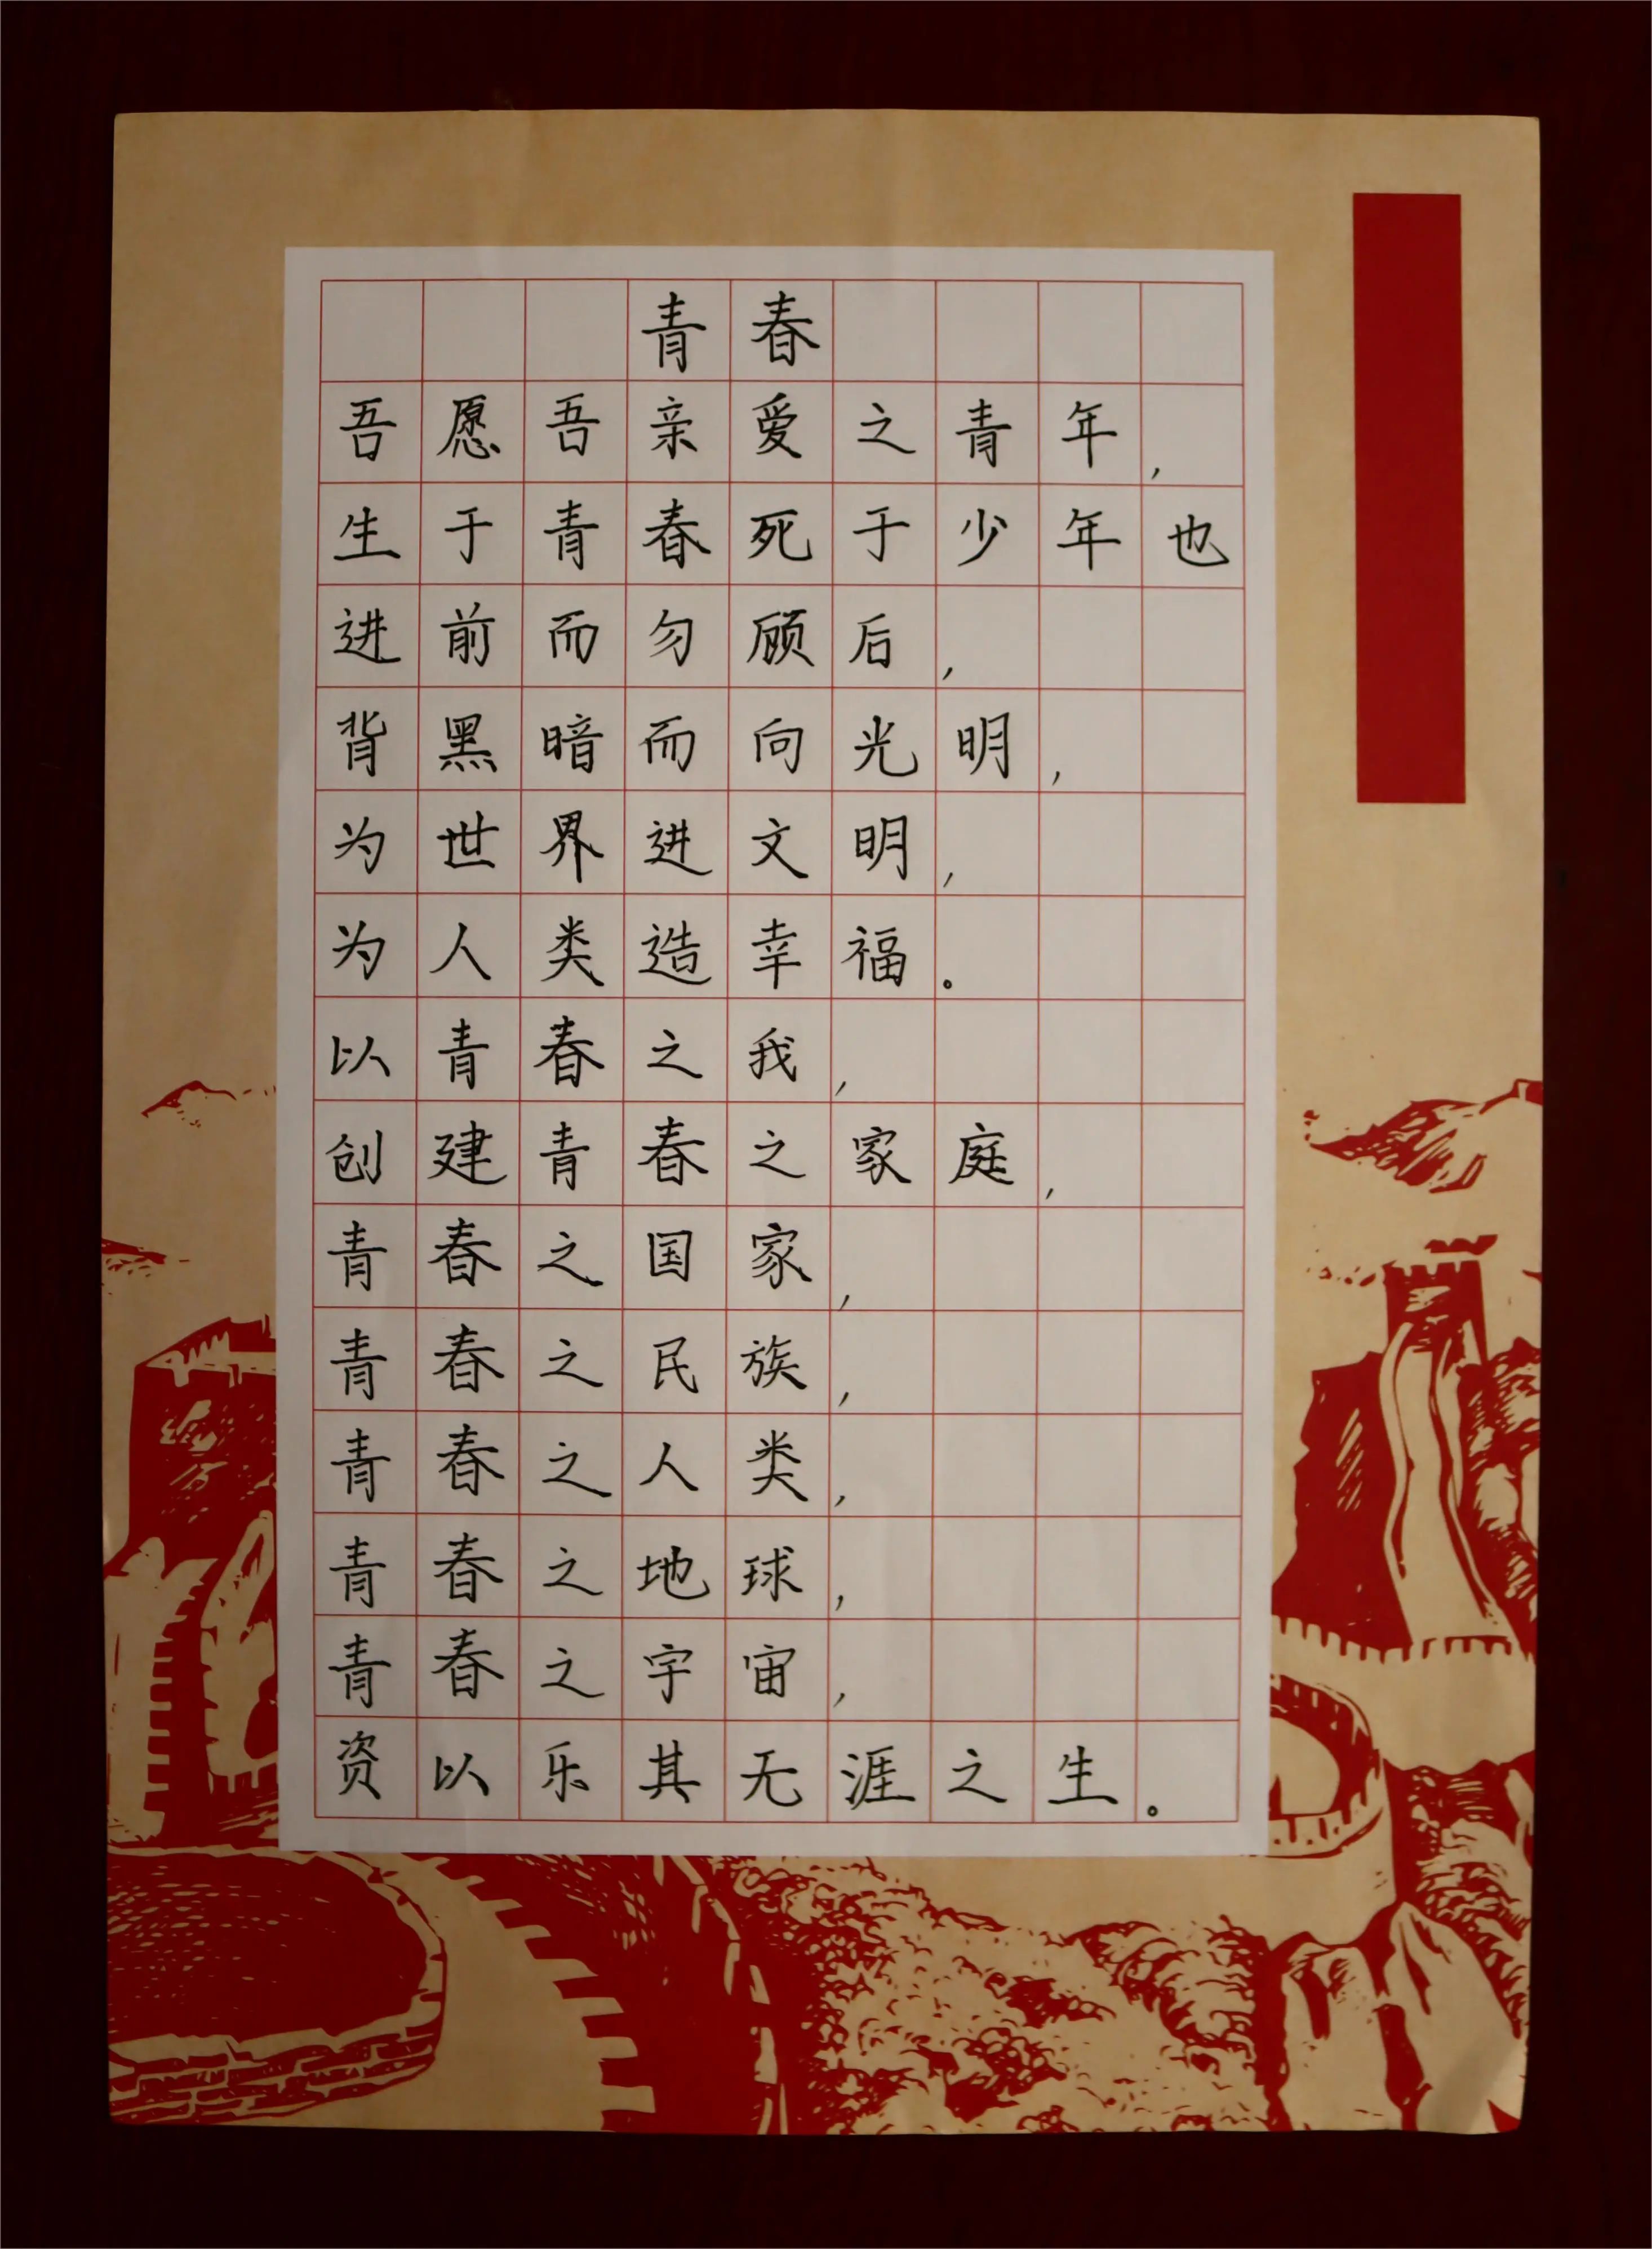 青春
吾愿吾亲爱之青年，
生于青春死于少年也
进前而勿顾后，
背黑暗而向光明，
为世界进文明，
为人类造幸福。
以青春之我，
创建青春之家庭，
青春之国家，
青春之民族，
青春之人类，
青春之地球，
青春之宇宙，
资以乐其无涯之生。